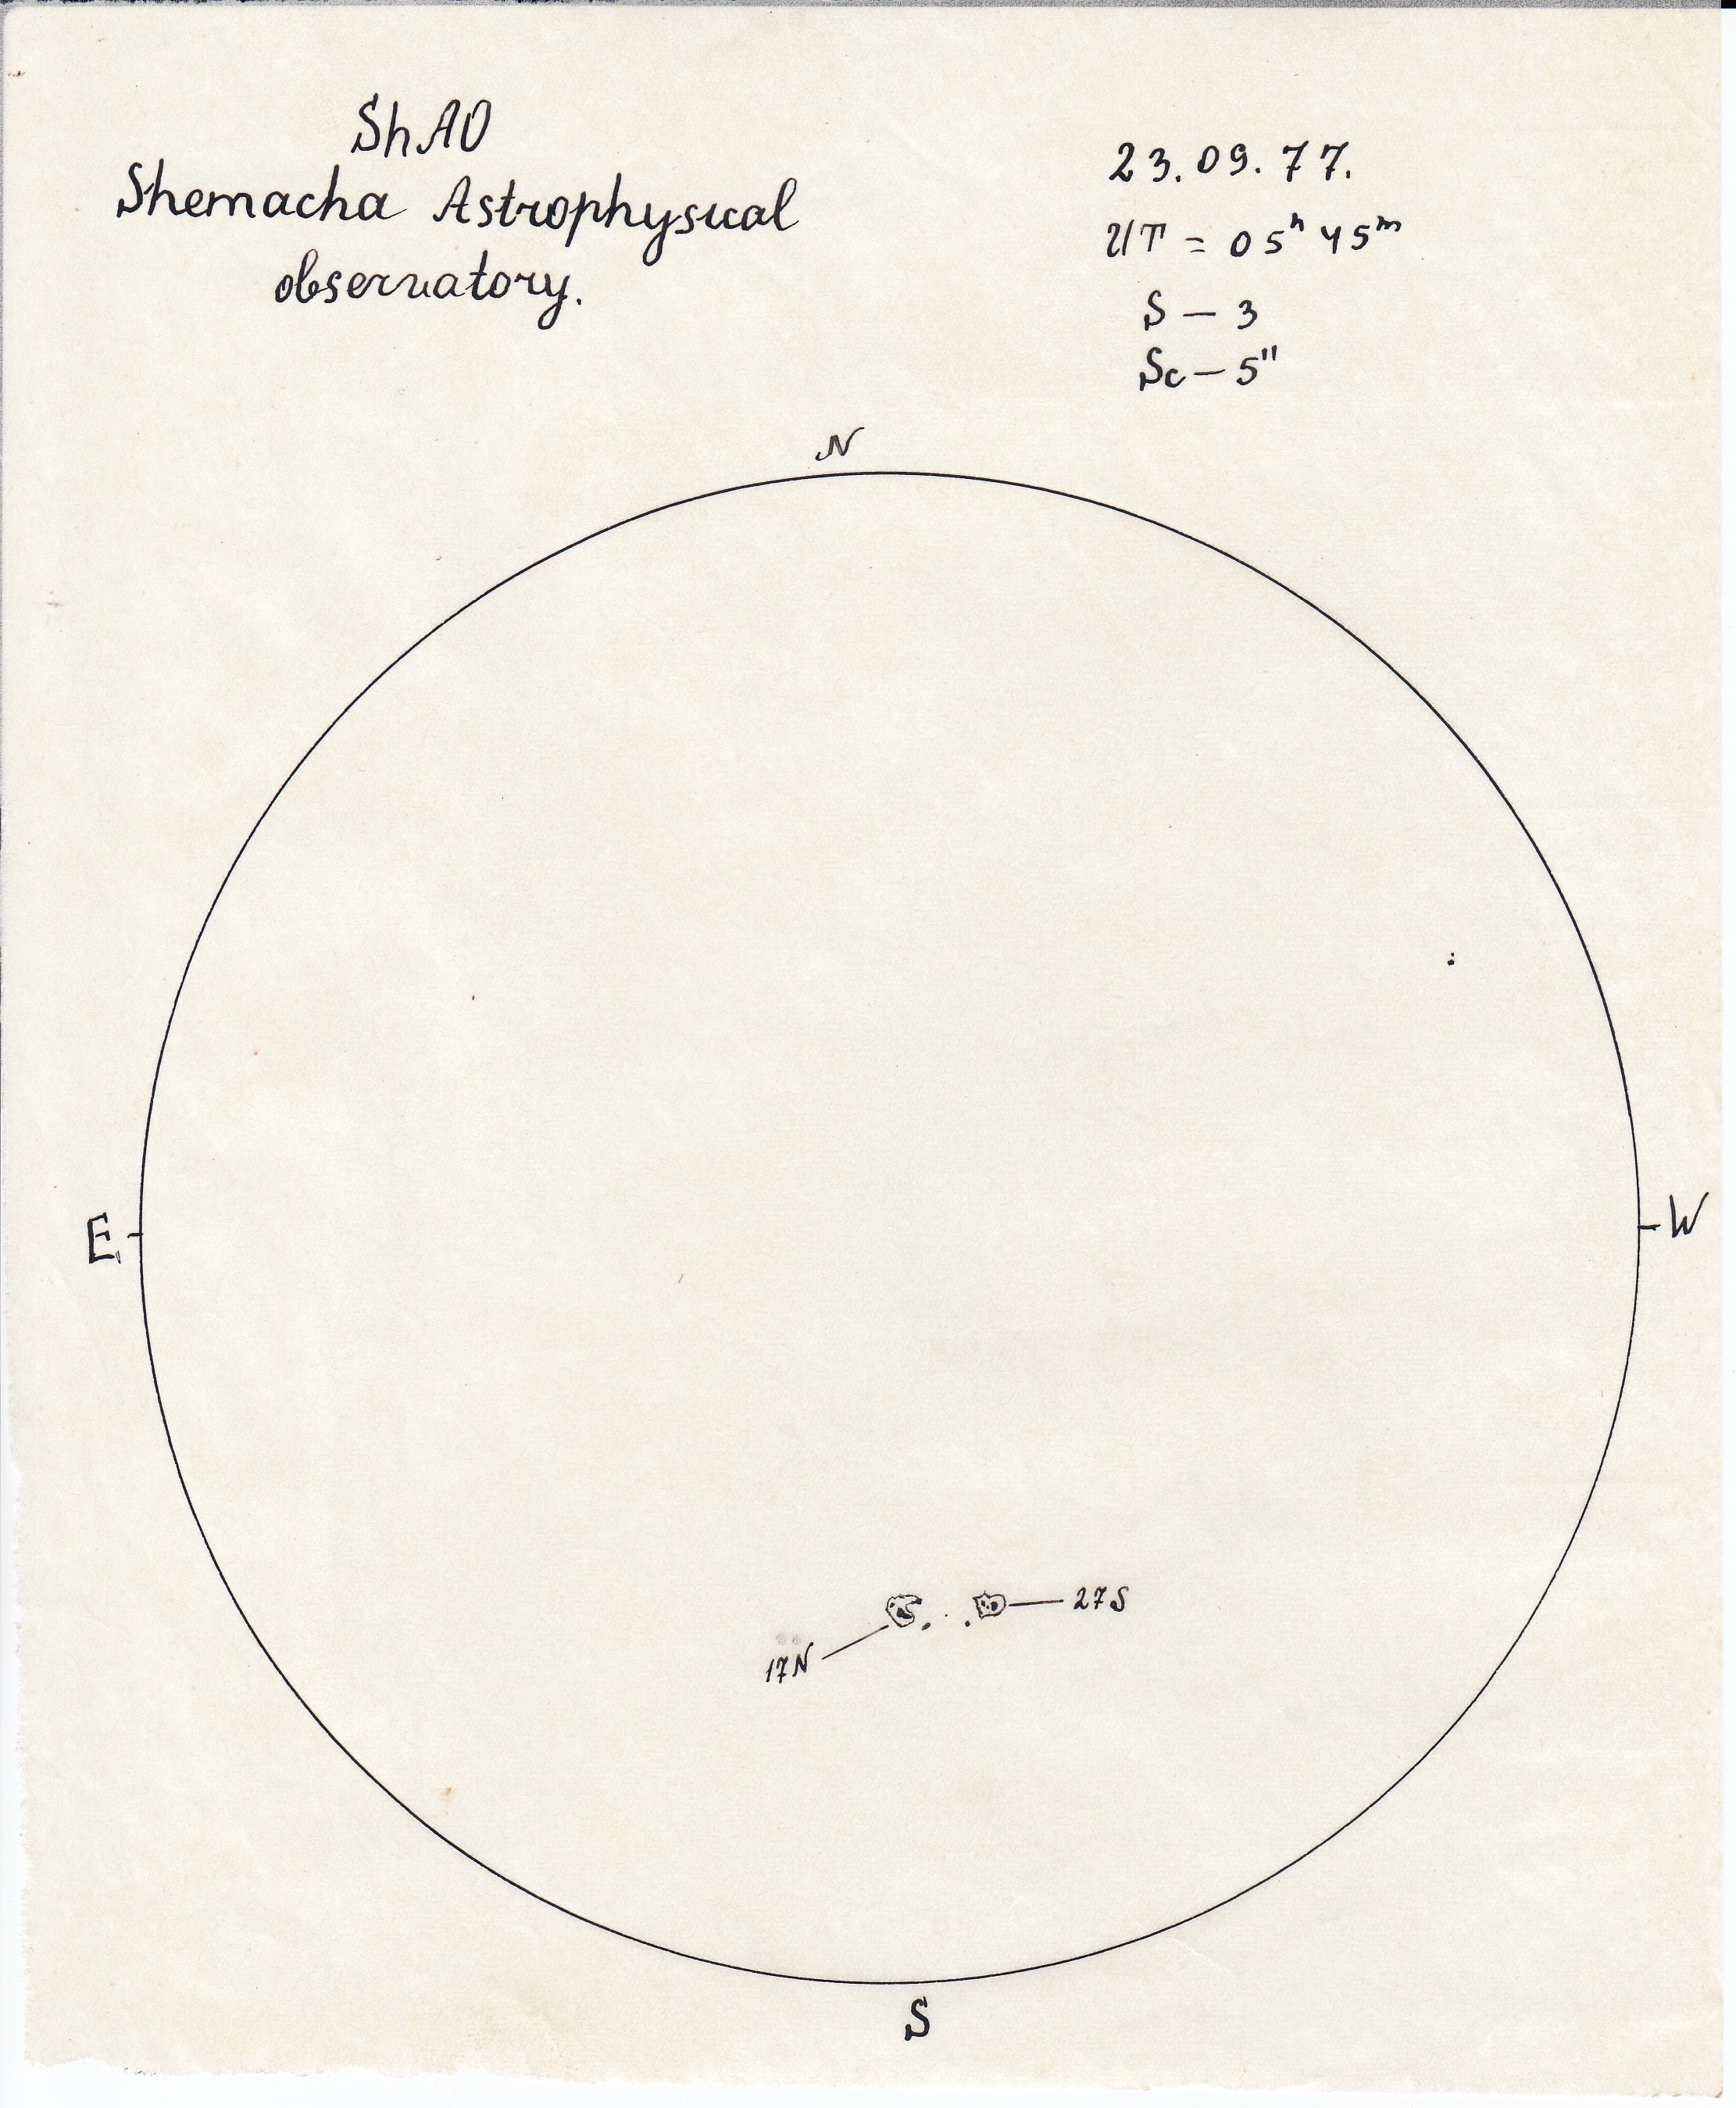 ShAO
Shemacha Astrophysical
observatory.
23.09.77.
UT = 05ʰ 45ᵐ
S – 3
Sc – 5"
N
E
W
27S
17N
S